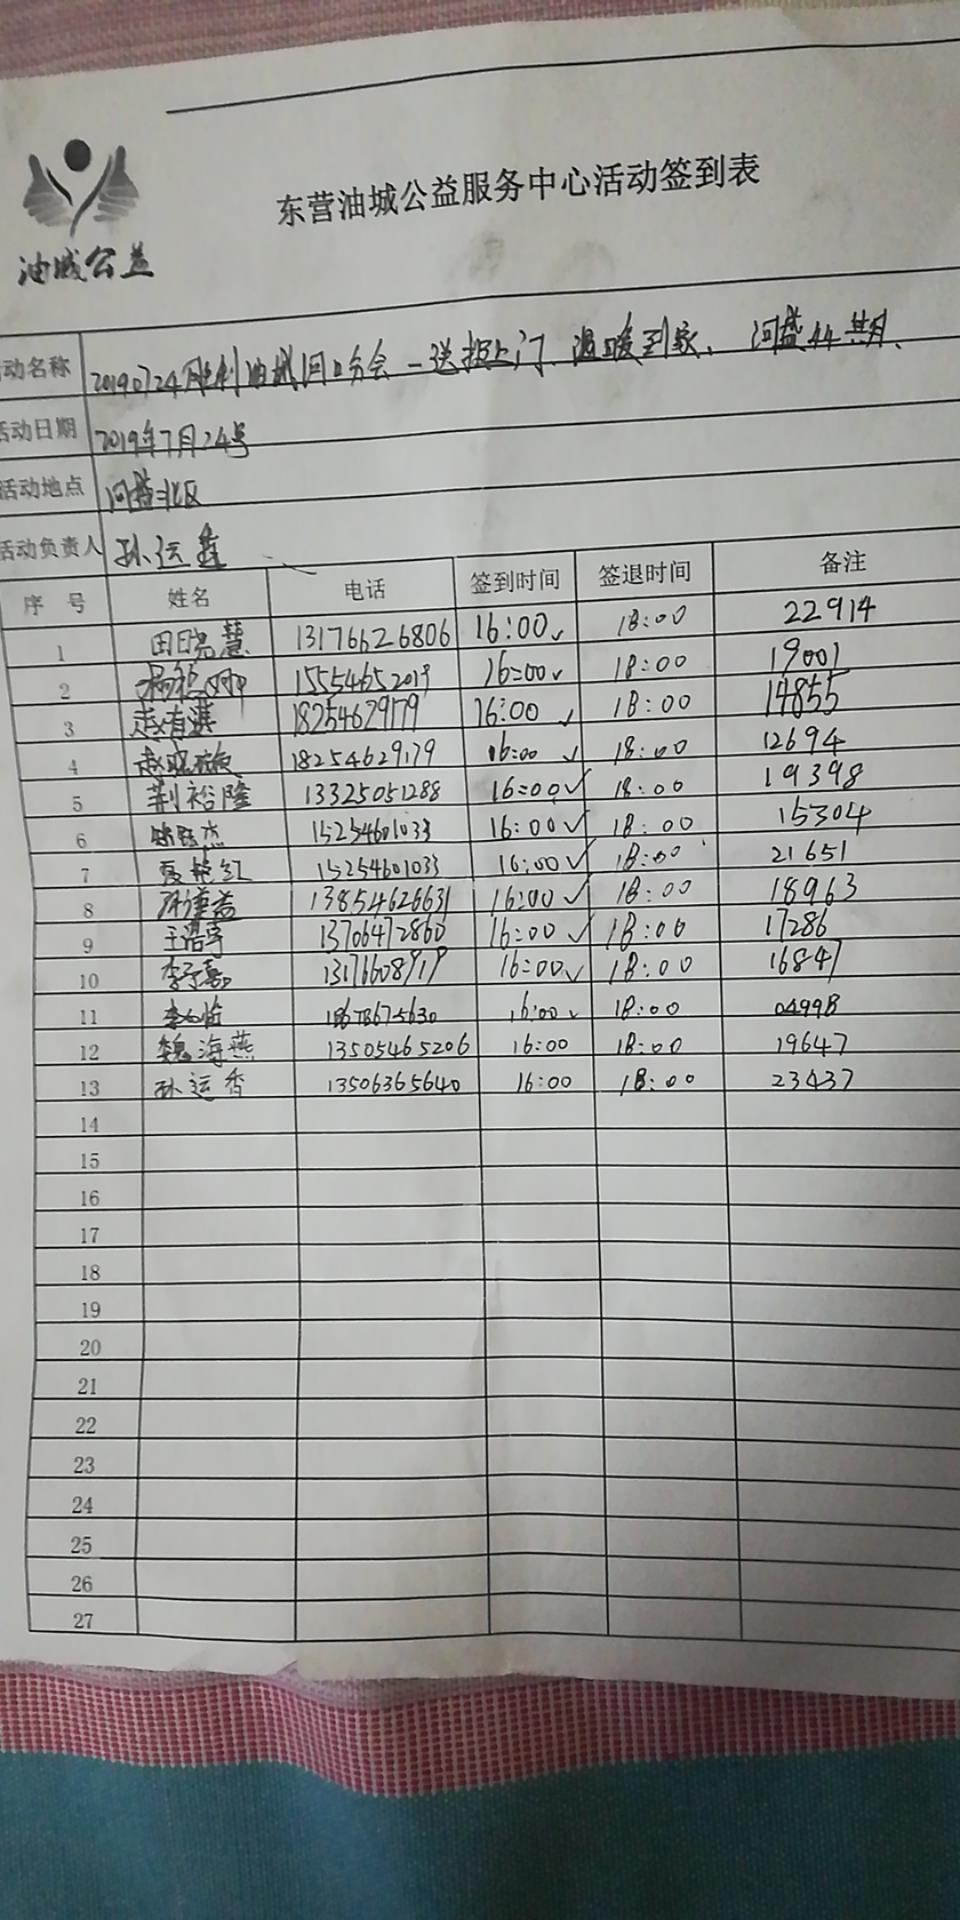 油城公益
东营油城公益服务中心活动签到表
动名称 20190724胜利油城河口分会一送报上门、温暖到家、河盛44期、
活动日期 2019年7月24号
活动地点 河盛北区
活动负责人 孙运香
序 号 姓名 电话 签到时间 签退时间 备注
1 田晓慧 13176626806 16:00✓ 18:00 22914
2 15554652019 16:00✓ 18:00 19001
3 赵有淇 18254629179 16:00 ✓ 18:00 14855
4 18254629179 16:00 ✓ 18:00 12694
5 荆裕隆 13325051288 16:00✓ 18:00 19398
6 15254601033 16:00✓ 18:00 15304
7 夏艳红 15254601033 16:00✓ 18:00 21651
8 13854626631 16:00✓ 18:00 18963
9 王浩宇 13706472860 16:00✓ 18:00 17286
10 李子嘉 13176608919 16:00✓ 18:00 16847
11 18678675630 16:00✓ 18:00 04998
12 魏海燕 13505465206 16:00 18:00 19647
13 孙运香 13506365640 16:00 18:00 23437
14
15
16
17
18
19
20
21
22
23
24
25
26
27